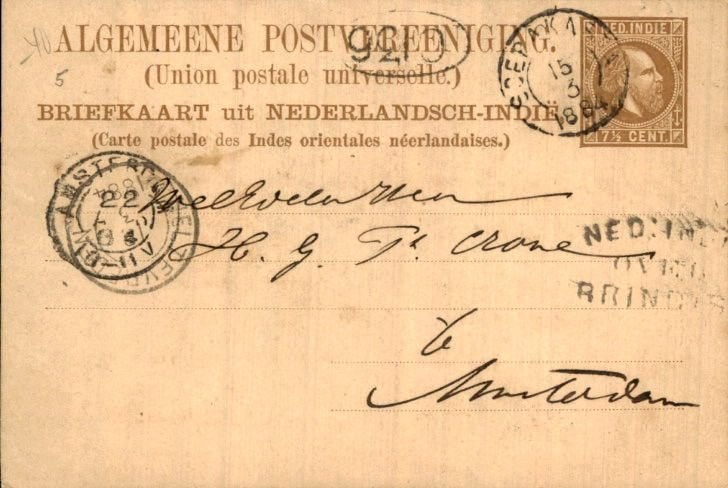 ALGEMEENE POSTVEREENIGING.
(Union postale universelle.)
BRIEFKAART uit NEDERLANDSCH-INDIË
(Carte postale des Indes orientales néerlandaises.)
NED. INDIE
7½ CENT.
SOERAKARTA
15
3
1884
5
AMSTERDAM
22
WelEdelen Heer
H. G. Th. Crone
NED: IN
OVER
BRINDIS
te
Amsterdam